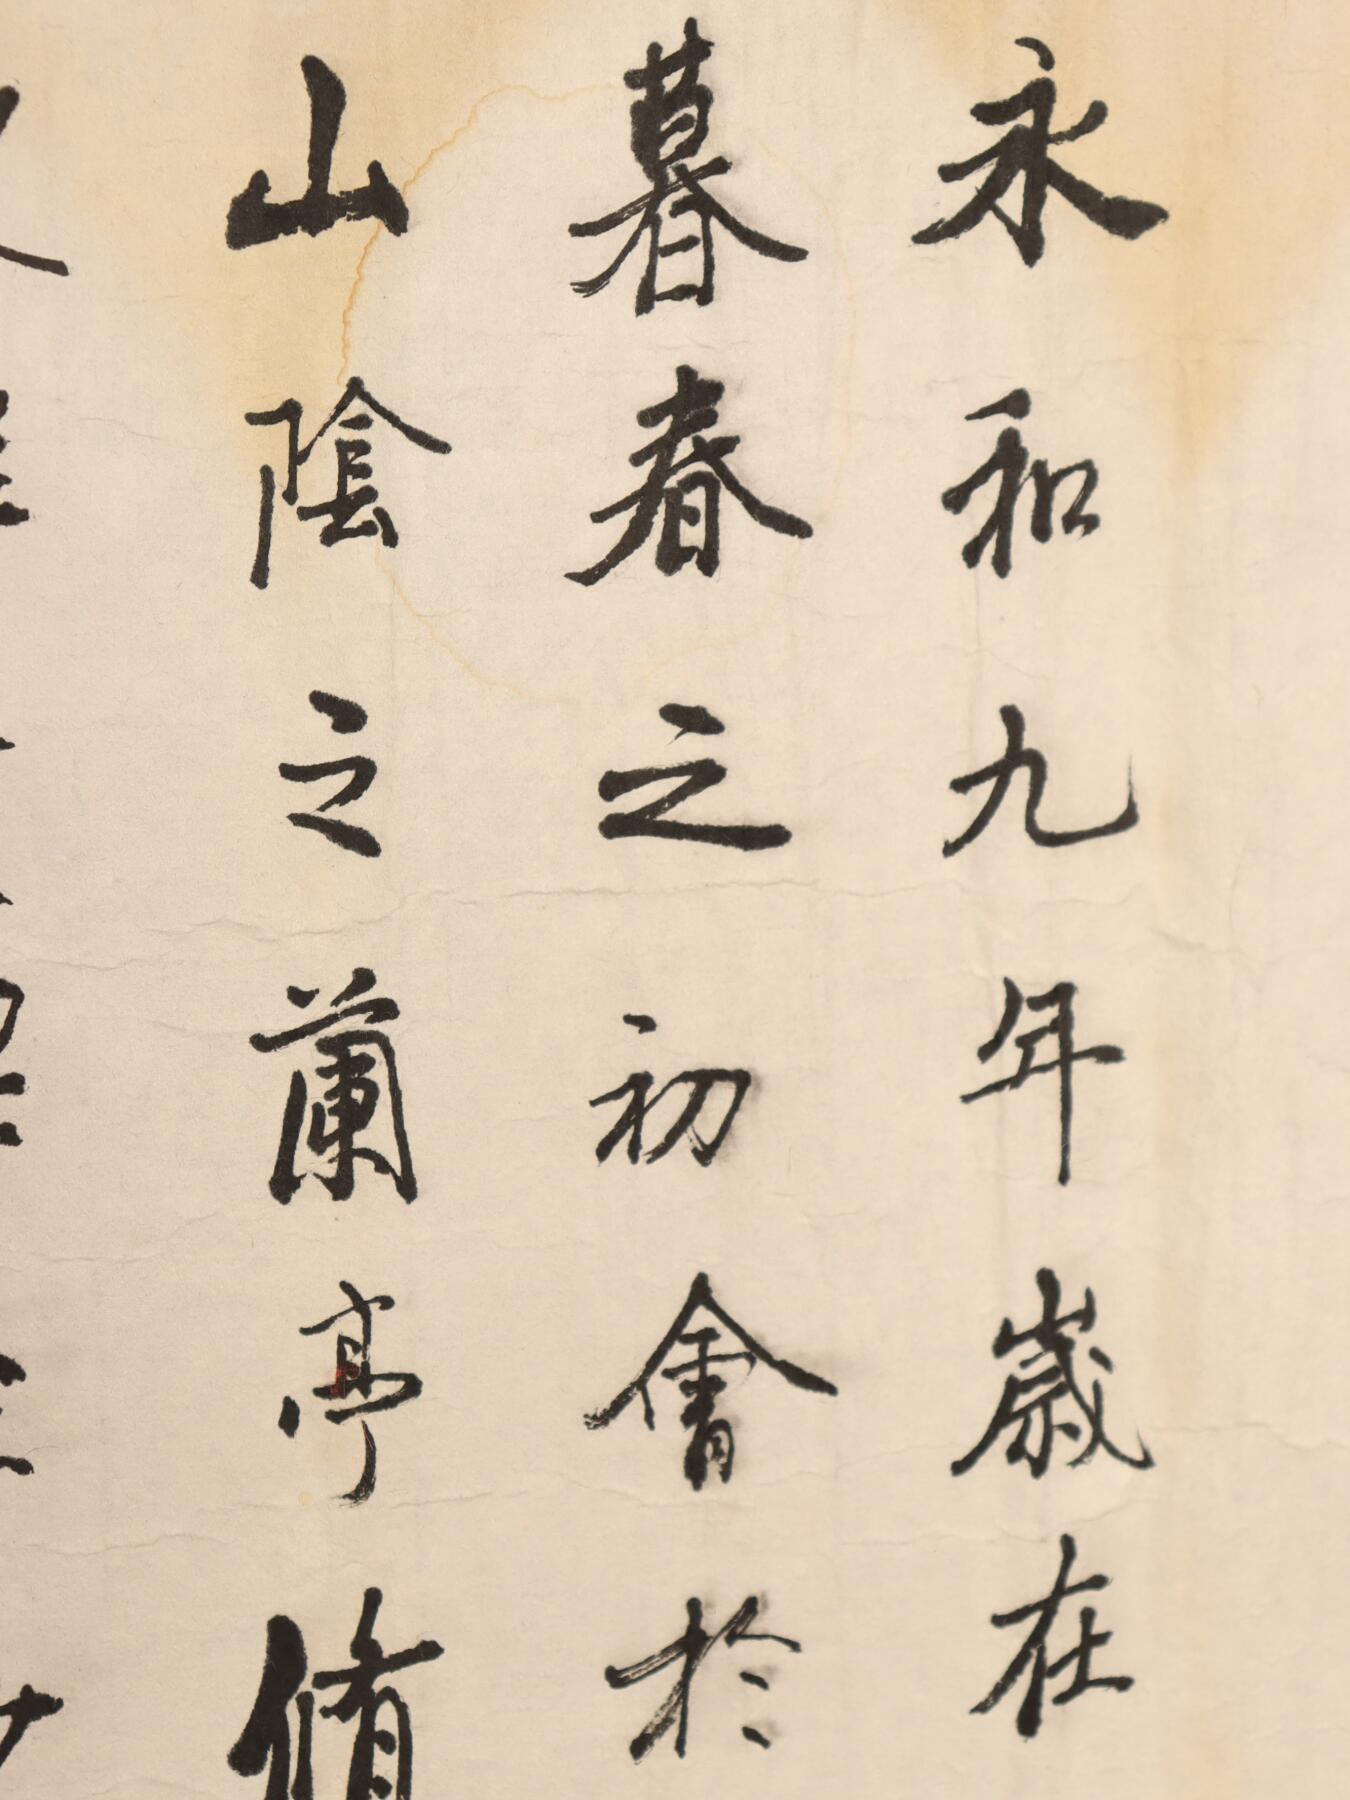 永和九年歲在
暮春之初會於
山陰之蘭亭脩